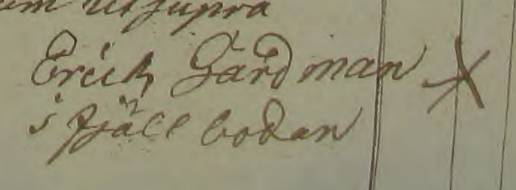 ut supra
Erick Gärdman
i fjäll bodan